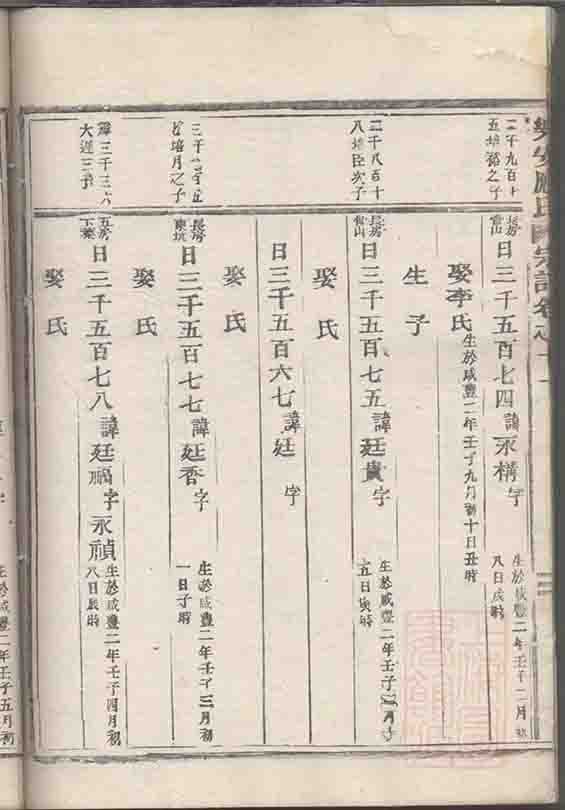 氏宗譜卷之十一
二千九百十
五培裕之子
長房
官山
日三千五百七四諱永構字
生於咸豐二年壬子二月初
八日戌時
娶李氏生於咸豐二年壬子九月初十日丑時
生子
二千八百十
八培臣次子
長房
官山
日三千五百七五諱廷貴字
生於咸豐二年壬子
五日寅時
娶氏
日三千五百六七諱廷字
娶氏
培月之子
長房
東坑
日三千五百七七諱廷香字
生於咸豐二年壬子三月初
一日子時
娶氏
大運三子
五房
日三千五百七八諱廷福字永禎
生於咸豐二年壬子四月初
八日辰時
娶氏
二年壬子五月初